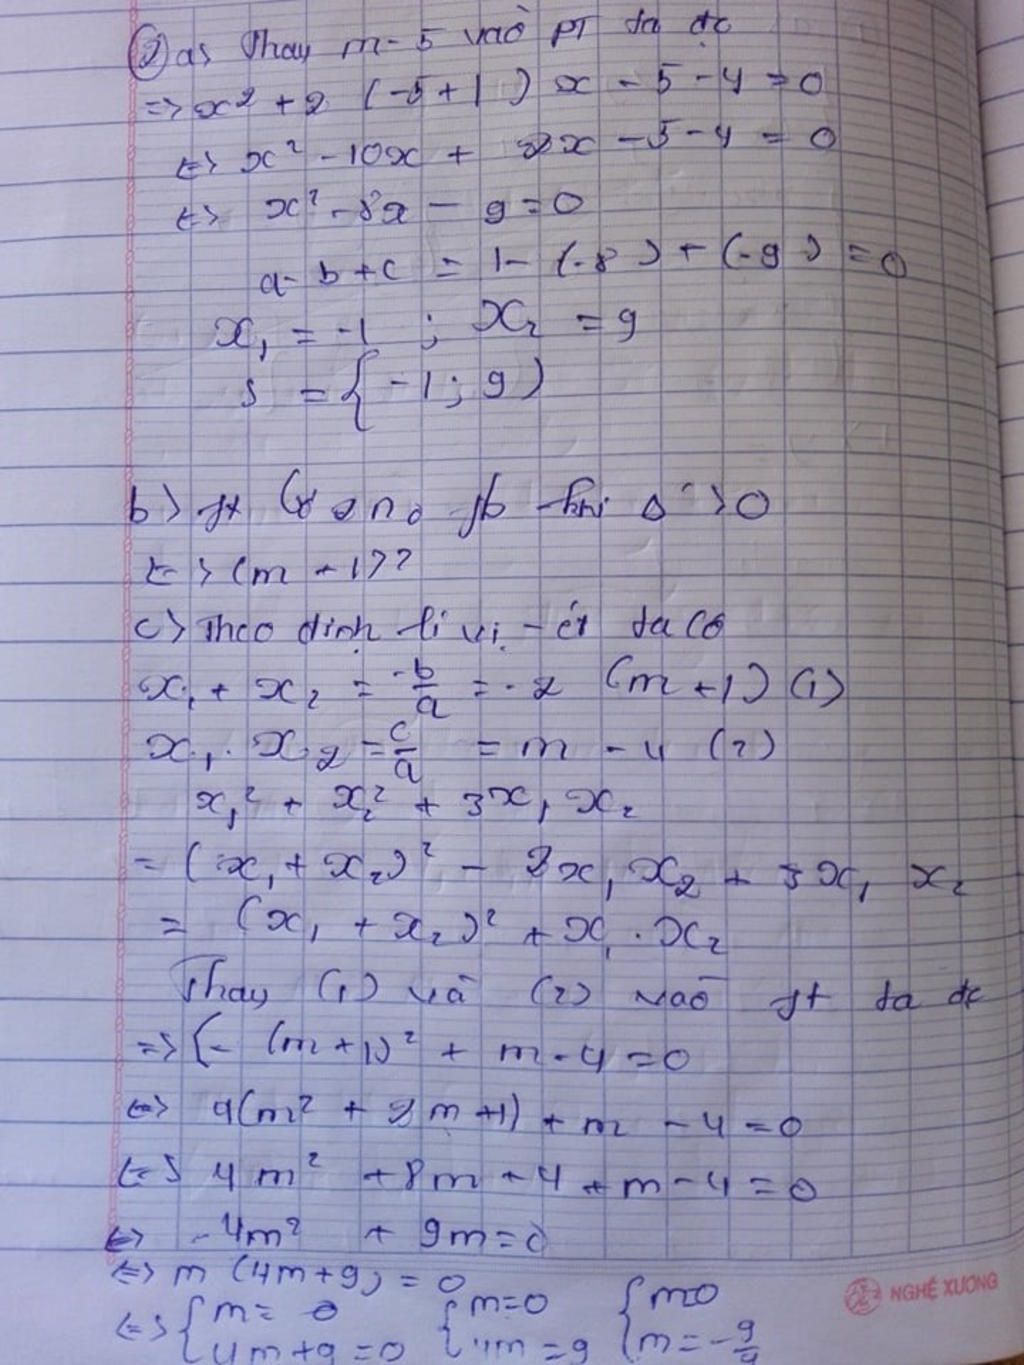 2) a) Thay m = -5 vào PT ta đc
=> x² + 2 (-5+1) x - 5 - 4 = 0
<=> x² - 10x + 2x - 5 - 4 = 0
<=> x² - 8x - 9 = 0
a - b + c = 1 - (-8) + (-9) = 0
x₁ = -1 ; x₂ = 9
S = { -1 ; 9 )
b) pt có 2 no pb khi Δ' > 0
<=> (m + 1)²
c) Theo định lí vi-ét ta có
x₁ + x₂ = -b/a = -2 (m+1) (1)
x₁ . x₂ = c/a = m - 4 (2)
x₁² + x₂² + 3x₁x₂
= (x₁ + x₂)² - 2x₁x₂ + 3x₁x₂
= (x₁ + x₂)² + x₁ . x₂
Thay (1) và (2) vào pt ta đc
=> [- (m+1)² + m - 4 = 0
<=> 4(m² + 2m + 1) + m - 4 = 0
<=> 4m² + 8m + 4 + m - 4 = 0
<=> -4m² + 9m = 0
<=> m (4m + 9) = 0
<=> { m = 0 { m = 0 { m 0
4m + 9 = 0 4m = 9 m = -9/4
NGHÊ XƯƠNG